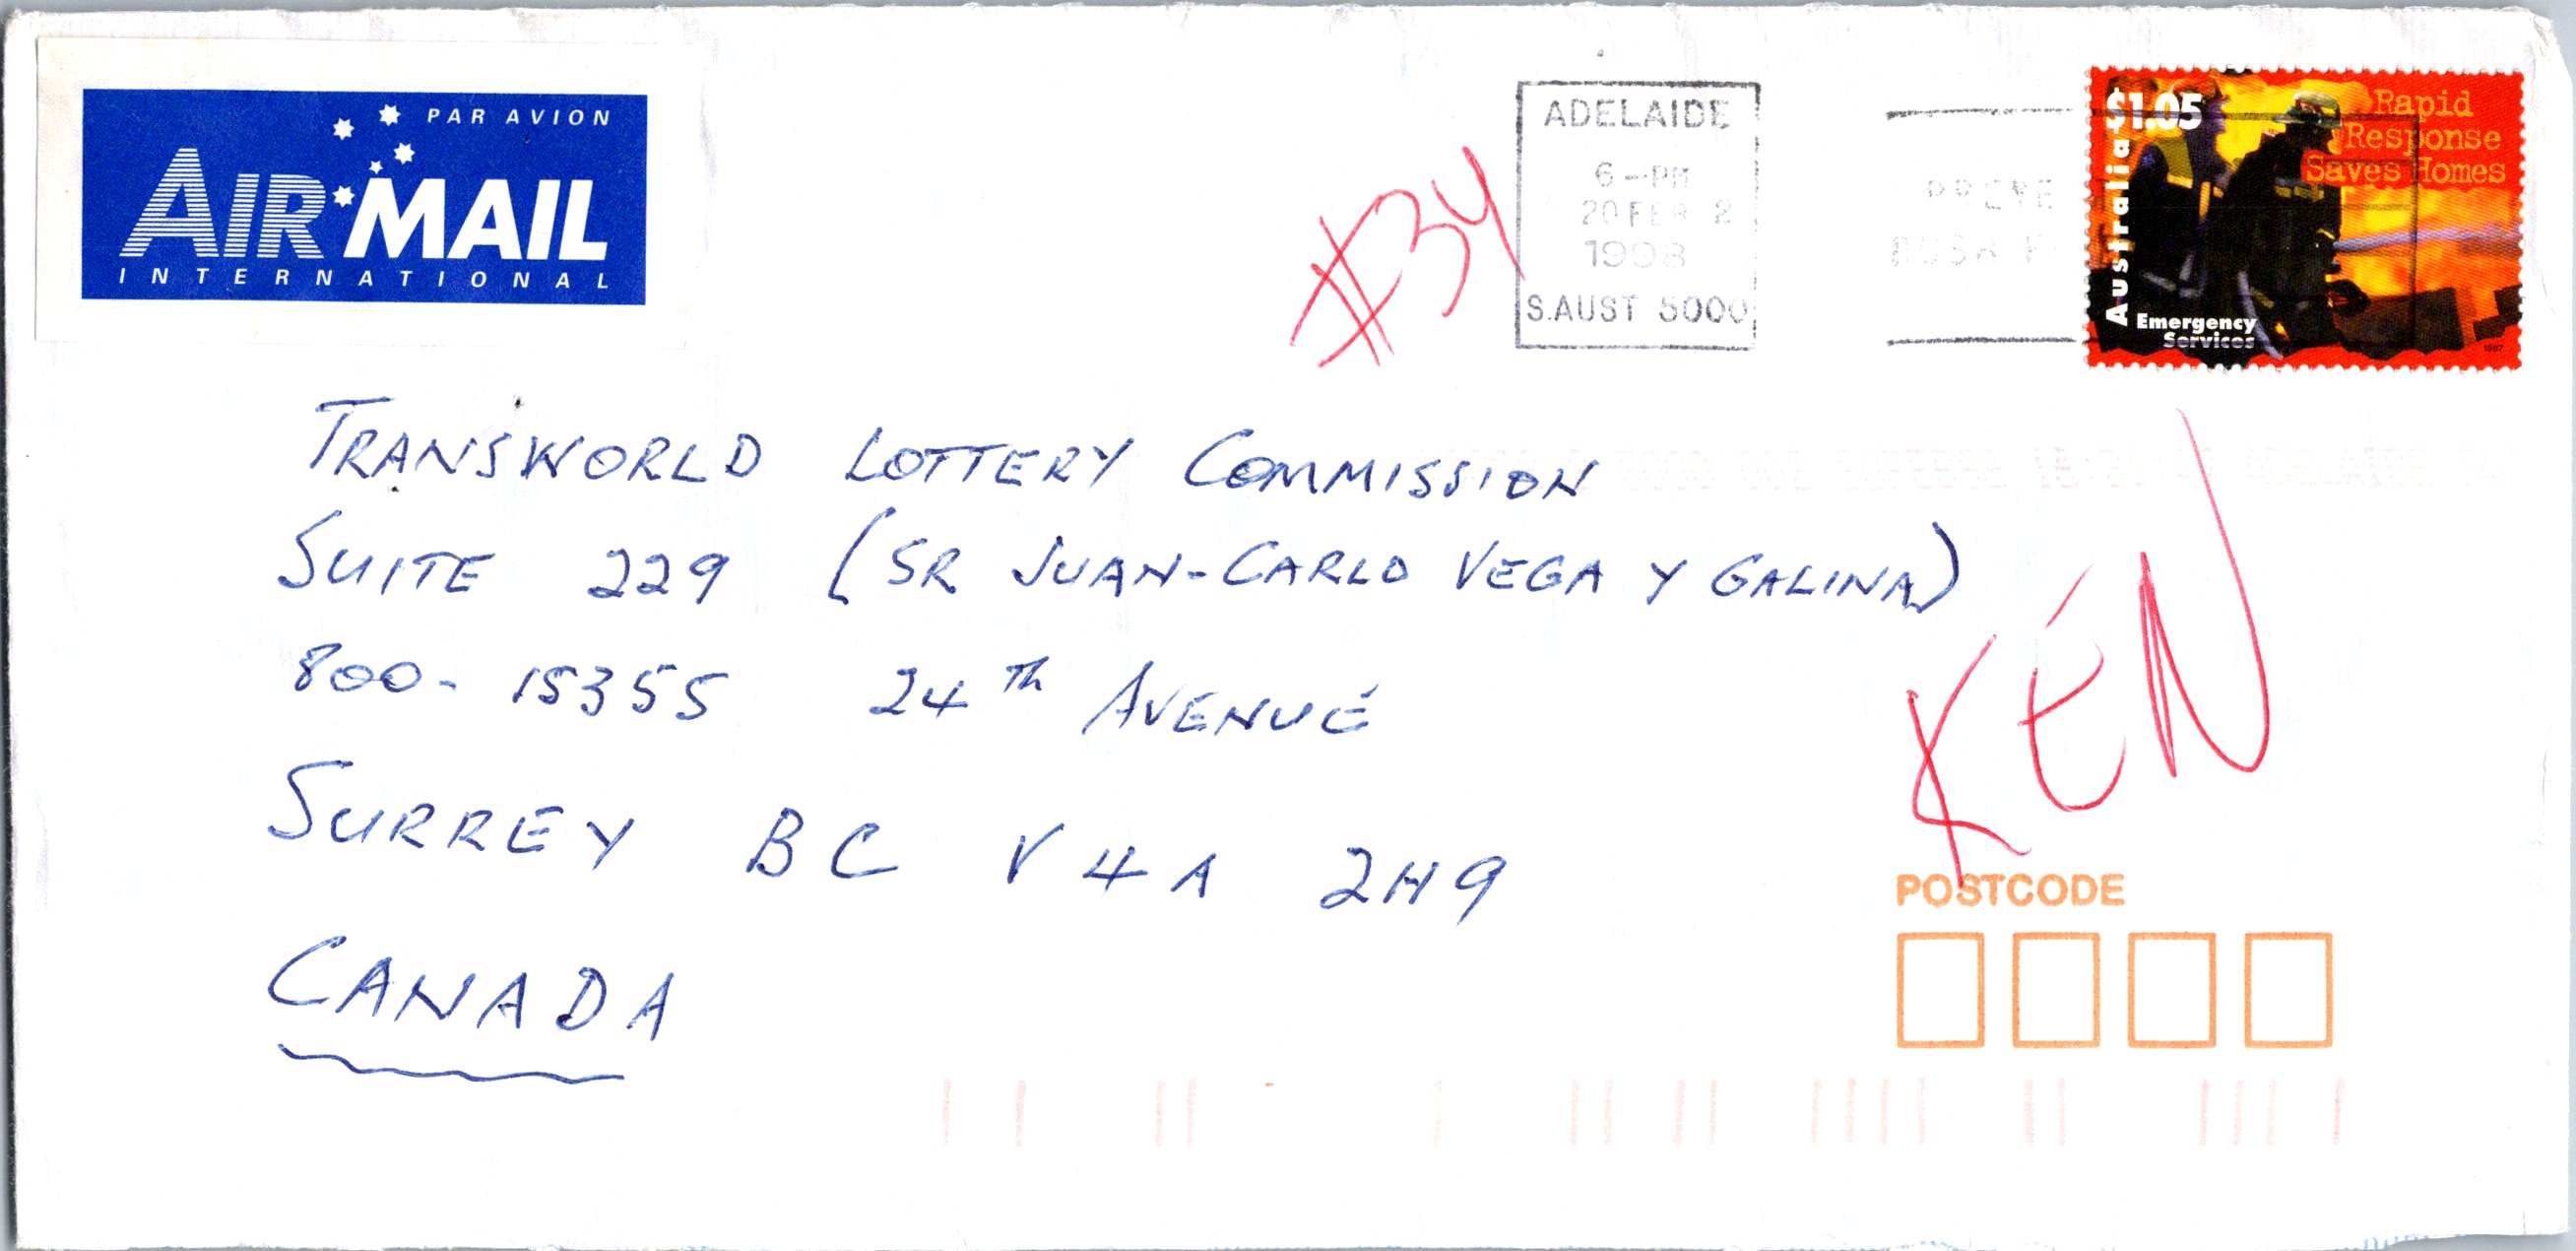 PAR AVION
AIR MAIL
INTERNATIONAL
#34
ADELAIDE
6-PM
20 FEB 2
1998
S.AUST 5000
PREVE
BUSH F
$1.05
Australia
Rapid
Response
Saves Homes
Emergency
Services
1997
TRANSWORLD LOTTERY COMMISSION
SUITE 229 (SR JUAN-CARLO VEGA Y GALINA)
800- 15355 24th AVENUE
SURREY BC V4A 2H9
CANADA
KEN
POSTCODE